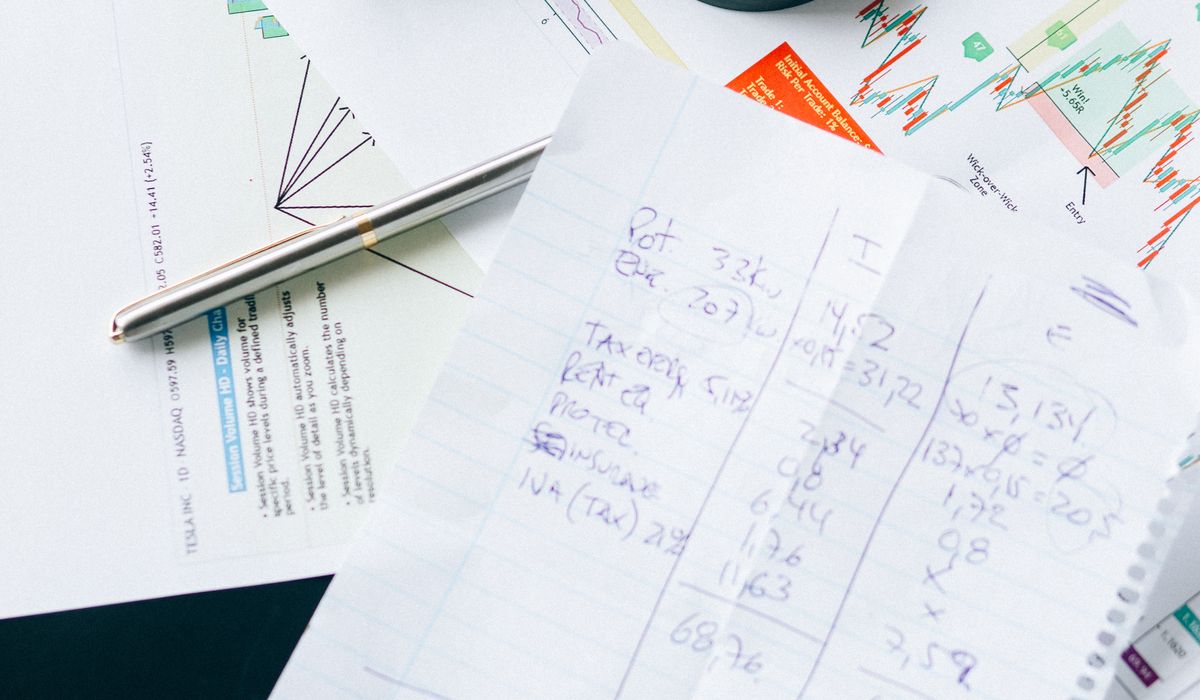 6
47
51
Win!
+5.65R
Wick-over-Wick
Zone
Entry
Initial Account Balance:
Risk Per Trade: 1%
Trade 1:
TESLA INC 1D NASDAQ O597.59 H597 2.05 C582.01 -14.41 (+2.54%)
Session Volume HD - Daily Cha
• Session Volume HD shows volume for
specific price levels during a defined tradi
period.
• Session Volume HD automatically adjusts
the level of detail as you zoom.
• Session Volume HD calculates the number
of levels dynamically depending on
resolution.
I E
Pot. 33kw 14,52 13,134
207 kw 0,15 = 31,22 50 x 0 = 0
137 x 0,15 = 20,5
5,11% 2,34 1,72
RENT EQ. 0,8 0,8
6,44 x
INSURANCE 1,76 x
IVA (TAX) 21% 11,63 7,59
68,76
1,1020